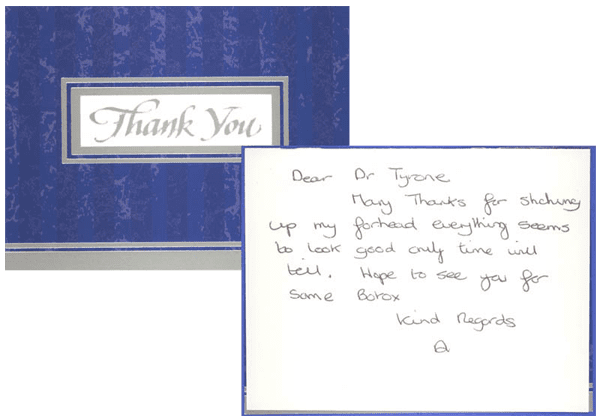 Thank You
Dear Dr Tyrone
Many Thanks for stiching
up my forhead everything seems
to look good only time will
tell. Hope to see you for
some Botox
Kind Regards